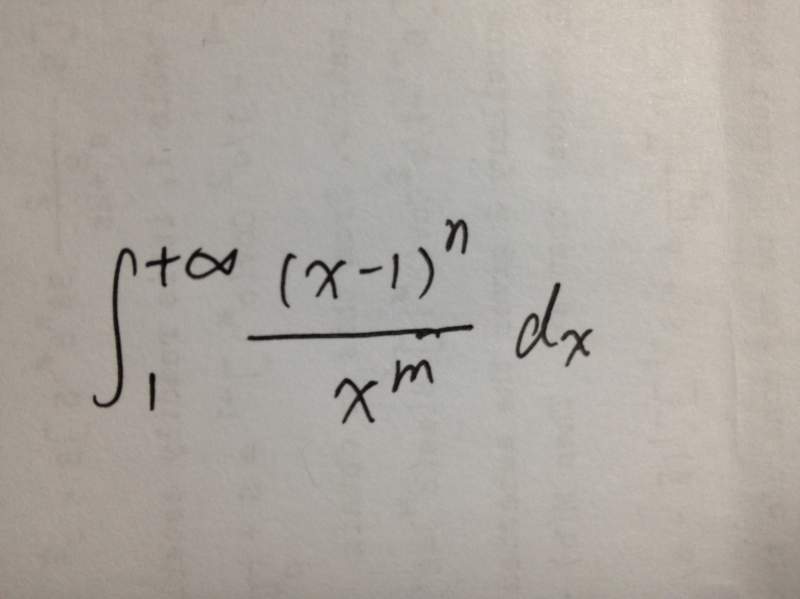 ∫₁^{+∞} (x-1)^n / x^m dx